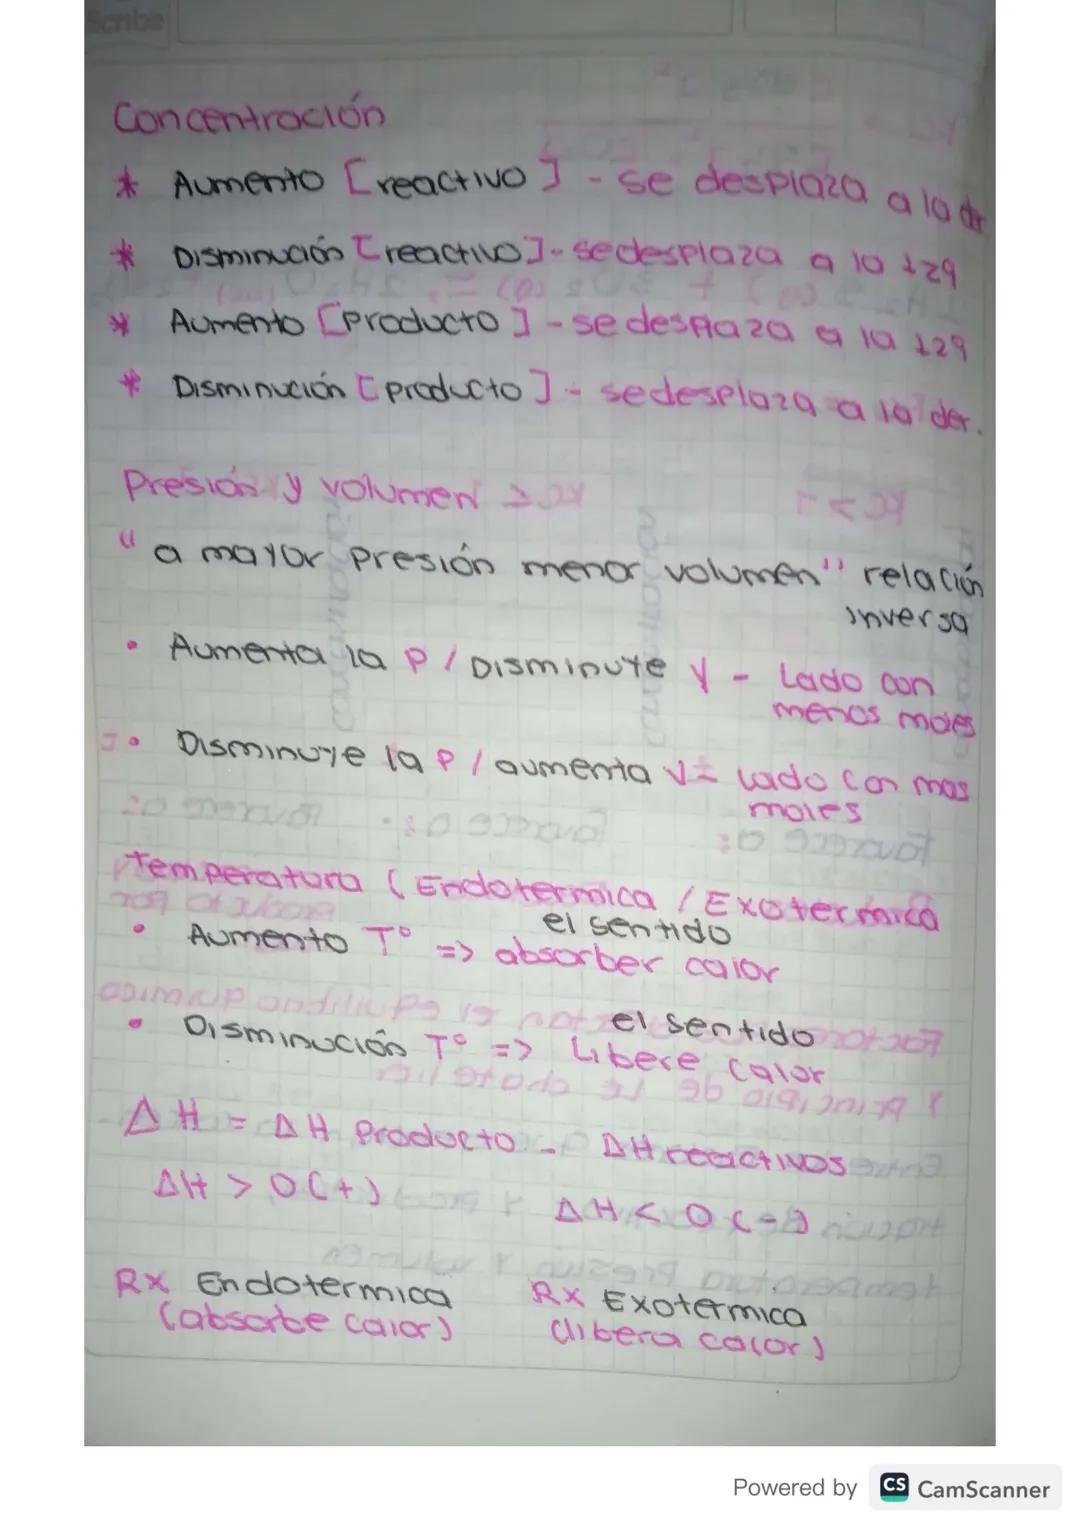 Scribe
Concentración
* Aumento [reactivo] - se desplaza a la der
* Disminución [reactivo] - se desplaza a la izq
* Aumento [producto] - se desplaza a la izq
* Disminución [producto] - se desplaza a la der.
Presión y volumen
"a mayor presión menor volumen" relación
inversa
• Aumenta la P / Disminuye V - Lado con
menos moles
• Disminuye la P / aumenta V = Lado con mas
moles
Temperatura (Endotermica / Exotermica
el sentido
• Aumento T° => absorber calor
el sentido
• Disminución T° => Libere calor
ΔH = ΔH Producto - ΔH reactivos
ΔH > 0 (+) ΔH < 0 (-)
Rx Endotermica Rx Exotermica
(absorbe calor) (libera calor)
Powered by CS CamScanner